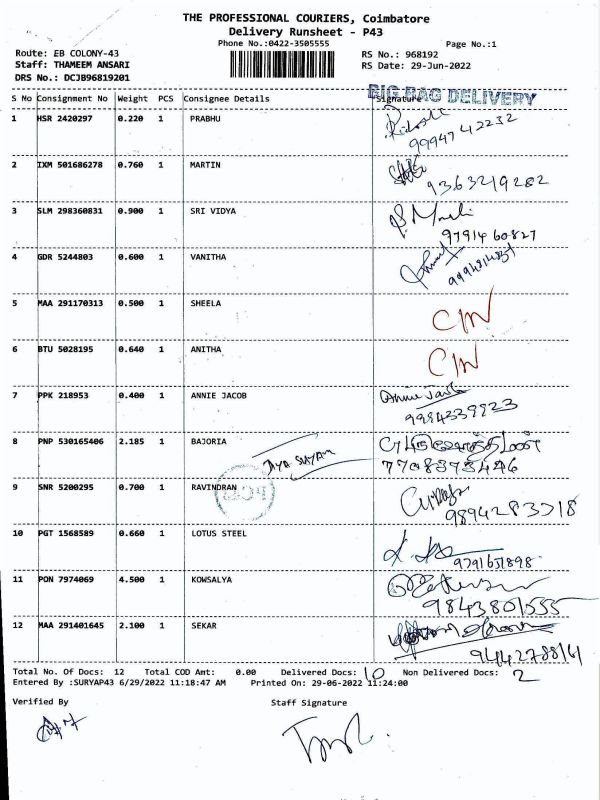 THE PROFESSIONAL COURIERS, Coimbatore
Delivery Runsheet - P43
Phone No.:0422-3505555
Page No.:1
Route: EB COLONY-43
RS No.: 968192
Staff: THAMEEM ANSARI
RS Date: 29-Jun-2022
DRS No.: DCJB96819201
BIG BAG DELIVERY
S No Consignment No Weight PCS Consignee Details Signature
1 HSR 2420297 0.220 1 PRABHU
9994742232
2 IXM 501686278 0.760 1 MARTIN
9363219282
3 SLM 298360831 0.900 1 SRI VIDYA
9791460827
4 GDR 5244803 0.600 1 VANITHA
5 MAA 291170313 0.500 1 SHEELA CIN
6 BTU 5028195 0.640 1 ANITHA CIN
7 PPK 218953 0.400 1 ANNIE JACOB
9984339923
8 PNP 530165406 2.185 1 BAJORIA
7708373446
9 SNR 5200295 0.700 1 RAVINDRAN
9894283318
10 PGT 1568589 0.660 1 LOTUS STEEL
9791631898
11 PON 7974069 4.500 1 KOWSALYA
9843801555
12 MAA 291401645 2.100 1 SEKAR
Total No. Of Docs: 12 Total COD Amt: 0.00 Delivered Docs: 10 Non Delivered Docs: 2
Entered By :SURYAP43 6/29/2022 11:18:47 AM Printed On: 29-06-2022 11:24:00
Verified By Staff Signature